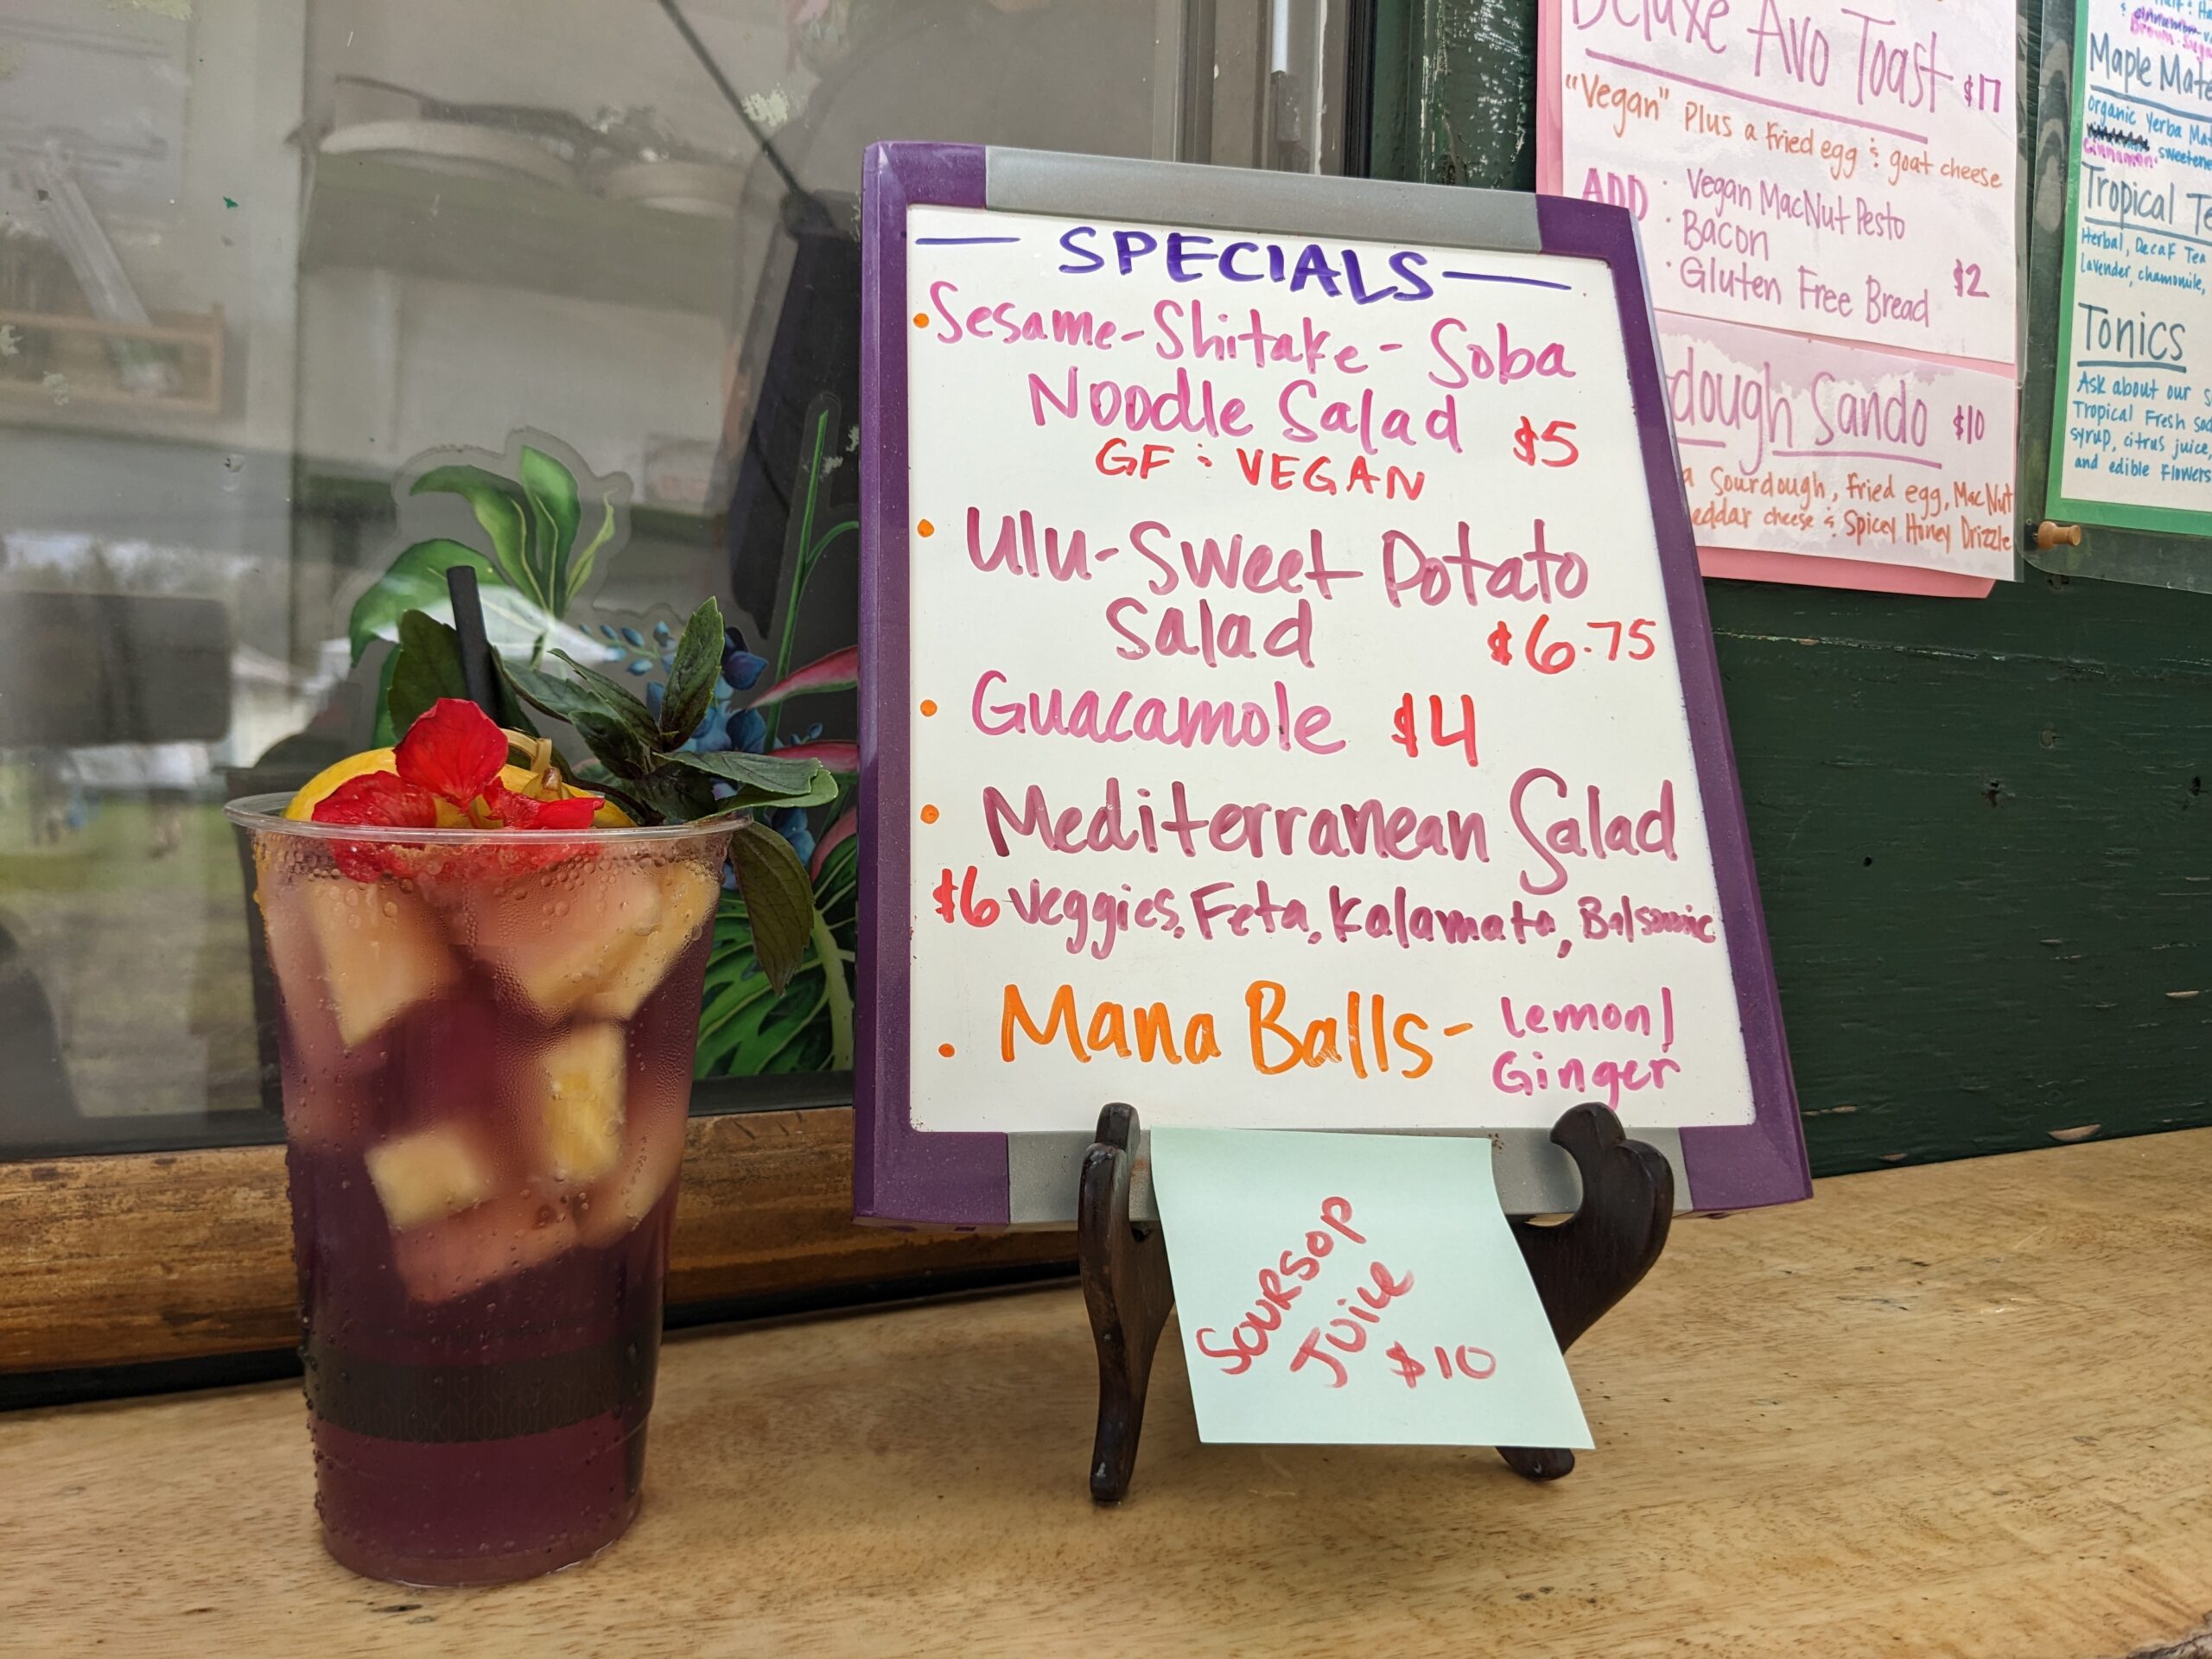 — SPECIALS —
• Sesame-Shitake-Soba
Noodle Salad $5
GF & VEGAN
• Ulu-Sweet Potato
Salad $6.75
• Guacamole $4
• Mediterranean Salad
$6 veggies, Feta, Kalamata, Balsamic
• Mana Balls- Lemon/
Ginger
Soursop
Juice
$10
Deluxe Avo Toast $17
"Vegan" Plus a fried egg & goat cheese
ADD • Vegan MacNut Pesto
• Bacon
• Gluten Free Bread $2
dough Sando $10
a Sourdough, fried egg, MacNut
eddar cheese & Spicey Honey Drizzle
Maple Mate
organic Yerba Mat
Cinnamon. sweetene
Tropical Te
Herbal, Decaf Tea
lavender, chamomile,
Tonics
Ask about our s
Tropical Fresh sod
syrup, citrus juice,
and edible Flowers